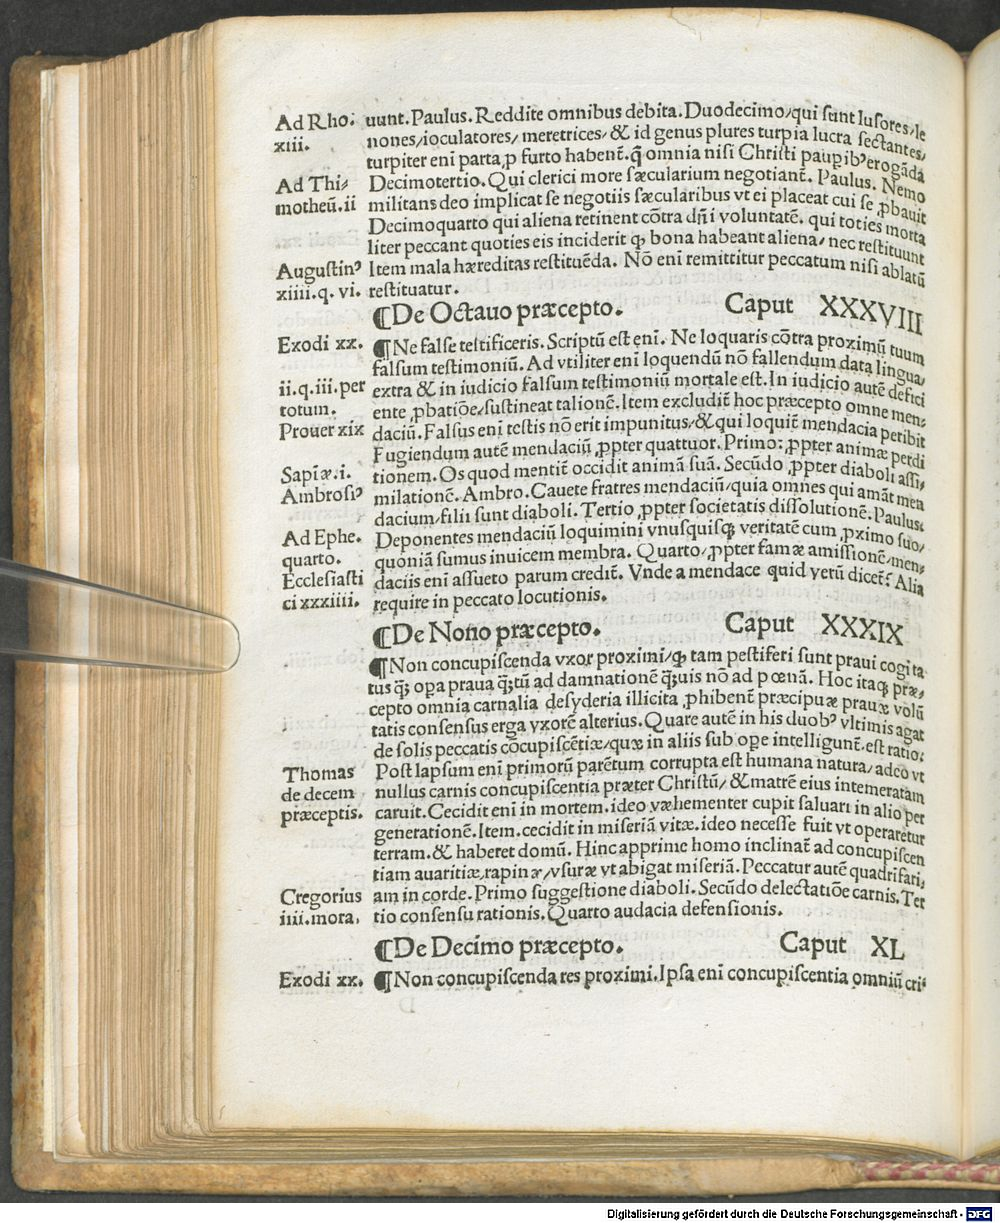 Ad Rho:
xiii.
Ad Thi⸗
motheū.ii
Augustinꝰ
xiiii.q.vi.
uunt.Paulus.Reddite omnibus debita.Duodecimo/qui sunt lusores/le
nones/ioculatores/meretrices/& id genus plures turpia lucra sectantes/
turpiter enī parta,ꝓ furto habent̄.q̄ omnia nisi Christi paupib'erogāda
Decimotertio.Qui clerici more sæcularium negotiant̄.Paulus.Nemo
militans deo implicat se negotiis sæcularibus vt ei placeat cui se ꝓbauit
Decimoquarto qui aliena retinent cōtra dn̄i voluntatē.qui toties morta
liter peccant quoties eis inciderit ꝙ bona habeant aliena/nec restituunt
Item mala hæreditas restituēda.Nō enī remittitur peccatum nisi ablatū
restituatur.
¶De Octauo præcepto. Caput XXXVIII
Exodi xx.
ii.q.iii.per
totum.
Prouer xix
Sapiæ.i.
Ambrosiꝰ
Ad Ephe.
quarto.
Ecclesiasti
ci xxxiiii.
¶Ne false testificeris.Scriptū est enī.Ne loquaris cōtra proximū tuum
falsum testimoniū.Ad vtiliter enī loquendū nō fallendum data lingua/
extra & in iudicio falsum testimoniū mortale est.In iudicio autē defici
ente ꝓbatiōe/sustineat talionē.Item excludit̄ hoc præcepto omne men⸗
daciū.Falsus enī testis nō erit impunitus/& qui loquit̄ mendacia peribit
Fugiendum autē mendaciū ꝓpter quattuor.Primo:ꝓpter animæ perdi
tionem.Os quod mentit̄ occidit animā suā.Secūdo ꝓpter diaboli assi⸗
milationē.Ambro.Cauete fratres mendaciū/quia omnes qui amāt men
dacium/filii sunt diaboli.Tertio ꝓpter societatis dissolutionē.Paulus:
Deponentes mendaciū loquimini vnusquisꝗ veritatē cum ꝓximo suo/
quoniā sumus inuicem membra.Quarto/ꝓpter famæ amissionē/men⸗
daciis enī assueto parum credit̄.Vnde a mendace quid verū dicet̄?Alia
require in peccato locutionis.
¶De Nono præcepto. Caput XXXIX
Thomas
de decem
præceptis.
Cregorius
iiii.mora.
¶Non concupiscenda vxor proximi/ꝙ tam pestiferi sunt praui cogita
tus q̄; opa praua q̄;tū ad damnationē q̄;uis nō ad pœnā.Hoc itaꝗ præ⸗
cepto omnia carnalia desyderia illicita ꝓhibent̄ præcipuæ prauæ volū
tatis consensus erga vxorē alterius.Quare autē in his duobꝰ vltimis agat
de solis peccatis cōcupiscētiæ/quæ in aliis sub ope intelligunt̄.est ratio:
Post lapsum enī primorū parētum corrupta est humana natura/adeo vt
nullus carnis concupiscentia præter Christū/&matrē eius intemeratam
caruit.Cecidit enī in mortem.ideo væhementer cupit saluari in alio per
generationē.Item.cecidit in miseriā vitæ.ideo necesse fuit vt operaretur
terram.& haberet domū.Hinc apprime homo inclinat̄ ad concupiscen
tiam auaritiæ/rapinæ/vsuræ vt abigat miseriā.Peccatur autē quadrifari⸗
am in corde.Primo suggestione diaboli.Secūdo delectatiōe carnis.Ter
tio consensu rationis.Quarto audacia defensionis.
¶De Decimo præcepto. Caput XL
Exodi xx.
¶Non concupiscenda res proximi.Ipsa enī concupiscentia omniū cri⸗
Digitalisierung gefördert durch die Deutsche Forschungsgemeinschaft - DFG